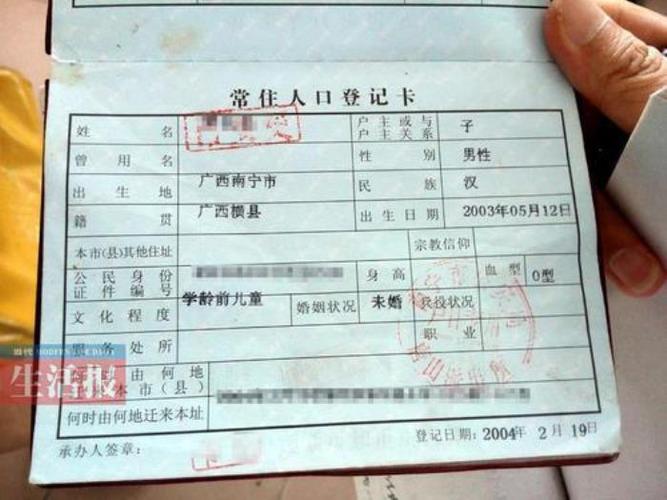 常住人口登记卡
姓名 户主或与户主关系 子
曾用名 性别 男性
出生地 广西南宁市 民族 汉
籍贯 广西横县 出生日期 2003年05月12日
本市(县)其他住址 宗教信仰
公民身份证件编号 身高 血型 O型
文化程度 学龄前儿童 婚姻状况 未婚 兵役状况
服务处所 职业
由何地
本市(县)
何时由何地迁来本址
承办人签章: 登记日期: 2004年2月19日
当代
生活报